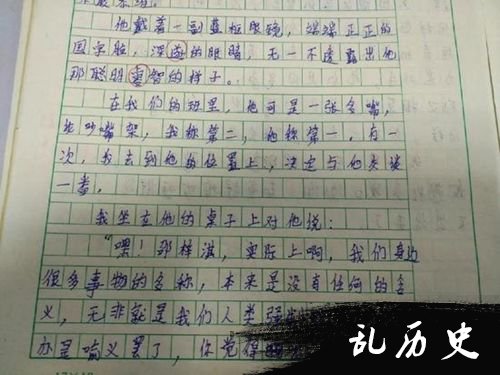 他戴着一副蓝框眼镜，端端正正的
国字脸，深邃的眼睛，无一不透露出他
那聪明睿智的样子。
在我们的班里，他可是一张名嘴，
论吵嘴架，我称第二，他称第一，有一
次，我去到他的位置上，决定与他决谈
一番。
我坐在他的桌子上对他说：
“嘿！那梓淇，实际上啊，我们身边
很多事物的名称，本来是没有任何的含
义，无非就是我们人类强
亦是喻义罢了，你觉得
乱历史